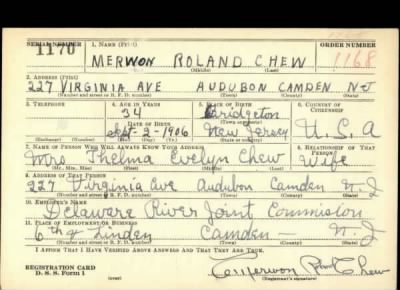 SERIAL NUMBER 1. NAME (Print) ORDER NUMBER
1170 MERWON ROLAND CHEW 1168
(First) (Middle) (Last)
2. ADDRESS (Print)
227 VIRGINIA AVE AUDUBON CAMDEN N.J
(Number and street or R. F. D. number) (Town) (County) (State)
3. TELEPHONE 4. AGE IN YEARS 5. PLACE OF BIRTH 6. COUNTRY OF CITIZENSHIP
34 Bridgeton
DATE OF BIRTH (Town or county)
Sept-2-1906 New Jersey U.S.A
(Exchange) (Number) (Mo.) (Day) (Yr.) (State or country)
7. NAME OF PERSON WHO WILL ALWAYS KNOW YOUR ADDRESS 8. RELATIONSHIP OF THAT PERSON
Mrs Thelma Evelyn Chew Wife
(Mr., Mrs., Miss) (First) (Middle) (Last)
9. ADDRESS OF THAT PERSON
227 Virginia Ave Audubon Camden N.J
(Number and street or R. F. D. number) (Town) (County) (State)
10. EMPLOYER'S NAME
Delaware River Joint Commission
11. PLACE OF EMPLOYMENT OR BUSINESS
6th & Linden Camden N.J
(Number and street or R. F. D. number) (Town) (County) (State)
I AFFIRM THAT I HAVE VERIFIED ABOVE ANSWERS AND THAT THEY ARE TRUE.
REGISTRATION CARD
D. S. S. Form 1 Merwon Roland Chew
(Registrant's signature)